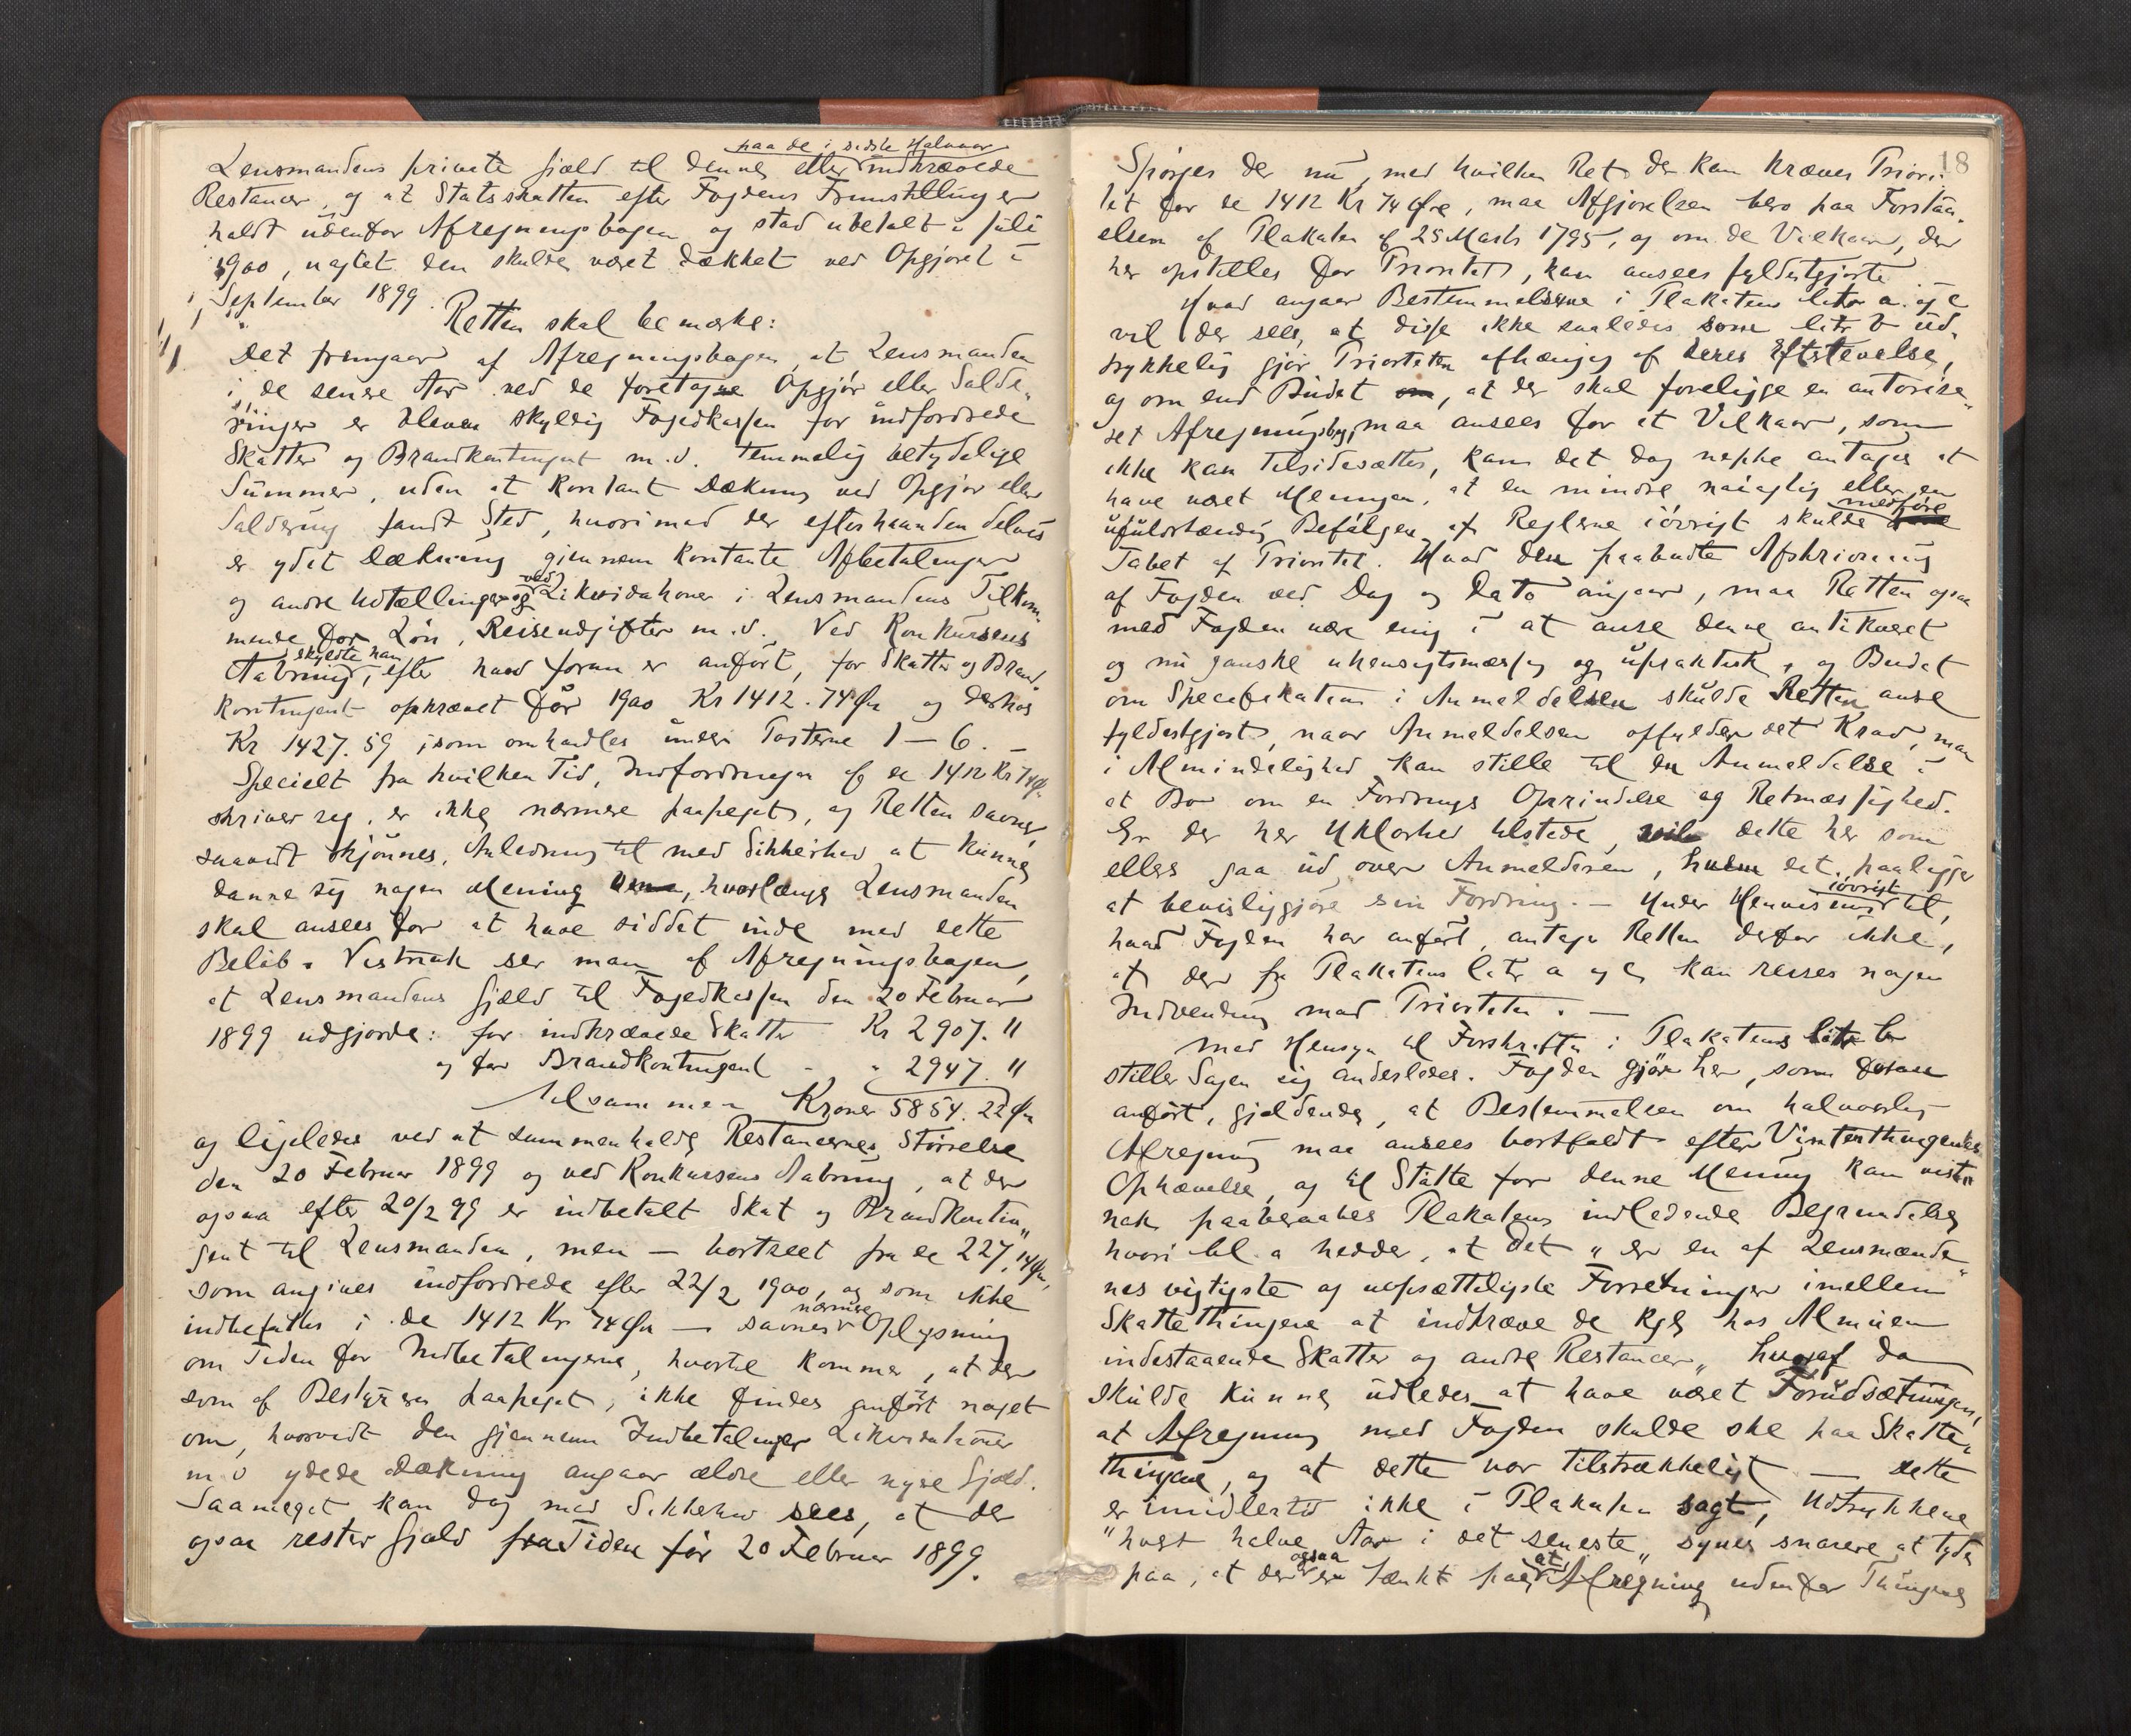 paa de i sidste Halvaar
Lensmandens private Gjæld til denne eller indkrævede
Restancer, og at Statsskatten efter Fogdens Fremstilling er
holdt udenfor Afregningsbogen og stod ubetalt i Juli
1900, uagtet den skulde været dækket ved Opgjøret i
September 1899.
Retten skal bemærke:
Det fremgaar af Afregningsbogen, at Lensmanden
i de senere Aar ved de foretagne Opgjør eller Salde-
ringer er bleven skyldig Fogedkassen for indfordrede
Skatter og Brandkontingent m.v. temmelig betydelige
Summer, uden at kontant Dækning ved Opgjør eller
Saldering fandt Sted, hvorimod der efterhaanden delvis
er ydet Dækning gjennem kontante Afbetalinger
og andre Udtællinger og ved Likvidationer i Lensmandens Tilkom-
mende for Løn, Reiseudgifter m.v. Ved Konkursens
Aabning skyldte han, efter hvad foran er anført, for Skatter og Brand-
kontingent opkrævet før 1900 Kr 1412.74 Øre og derhos
Kr 1427.59, som omhandles under Posterne 1 – 6. –
Specielt fra hvilken Tid, Indfordringen af de 1412 Kr 74 Ø.
skriver sig, er ikke nærmere paapeget, og Retten savner,
saavidt skjønnes, Anledning til med Sikkerhed at kunne
danne sig nogen Mening , hvorlænge Lensmanden
skal ansees for at have siddet inde med dette
Beløb. Vistnok ser man af Afregningsbogen,
at Lensmandens Gjæld til Fogedkassen den 20 Februar
1899 udgjorde: for indkrævede Skatter Kr 2907. "
og for Brandkontingent - " 2947. "
Tilsammen Kroner 5854. 22 Øre
og ligeledes ved at sammenholde Restancernes Størrelse
den 20 Februar 1899 og ved Konkursens Aabning, at der
ogsaa efter 20/2 99 er indbetalt Skat og Brandkontin-
gent til Lensmanden, men – bortseet fra de 227,14 Øre,
som angives indfordrede efter 22/2 1900, og som ikke
indbefattes i de 1412 Kr 74 Øre – savnes nærmere Oplysning
om Tiden for Indbetalingerne, hvortil kommer, at der
som af Bestyreren paapeget, ikke findes anført noget
om, hvorvidt den gjennem Indbetalinger Likvidationer
m.v. ydede Dækning angaar ældre eller nyere Gjæld.
Saameget kan dog med Sikkerhed sees, at der
ogsaa rester Gjæld fra Tiden før 20 Februar 1899.
18
Spørges der nu, med hvilken Ret der kan kræves Priori-
tet for de 1412 Kr 74 Øre, maa Afgjørelsen bero paa Forstaa-
elsen af Plakaten af 25 Marts 1795, og om de Vilkaar, der
her opstilles for Prioritet, kan ansees fyldestgjorte. –
Hvad angaar Bestemmelserne i Plakatens litr a og c
vil der sees, at disse ikke saaledes som litr b ud-
trykkelig gjør Prioriteten afhængig af deres Efterlevelse,
og om end Budet om, at der skal foreligge en autorise-
ret Afregningsbog, maa ansees for et Vilkaar, som
ikke kan tilsidesættes, kan det dog neppe antages at
have været Meningen, at en mindre nøiagtig eller en
ufuldstændig Befølgen af Reglerne iøvrigt skulde medføre
Tabet af Prioritet. Hvad den paabudte Afskrivning
af Fogden ved Dag og Dato angaar, maa Retten ogsaa
med Fogden være enig i at anse denne antikveret
og nu ganske uhensigtsmæssig og upraktisk, og Budet
om Specifikation i Anmeldelsen skulde Retten anse
fyldestgjort, naar Anmeldelsen opfylder det Krav, man
i Almindelighed kan stille til en Anmeldelse i
et Bo om en Fordrings Oprindelse og Retmæssighed.
Er der her Uklarhed tilstede, vil dette her som
ellers gaa ud over Anmelderen, hvem det paaligger
at bevisliggjøre sin Fordring. – Under Henvisning iøvrigt til,
hvad Fogden har anført, antager Retten derfor ikke,
at der fra Plakatens litr a og c kan reises nogen
Indvending mod Prioriteten. –
Med Hensyn til Forskriften i Plakatens litr b
stiller Sagen sig anderledes. Fogden gjør her, som foran
anført, gjældende, at Bestemmelsen om halvaarlig
Afregning maa ansees bortfaldt efter Vinterthingenes
Ophævelse, og til Støtte for denne Mening kan vist-
nok paaberaabes Plakatens indledende Begrundelse
hvori bl. a hedder, at det „er en af Lensmænde-
nes vigtigste og uopsætteligste Forretninger imellem
Skattethingene at indkræve de Kgl hos Almuen
indestaaende Skatter og andre Restancer„ hvoraf da
skulde kunne udledes at have været Forudsætningen,
at Afregning med Fogden skulde ske paa Skatte-
thingene, og at dette var tilstrækkeligt – dette
er imidlertid ikke i Plakaten sagt, Udtrykkene
"hvert halve Aar i det seneste„ synes snarere at tyde
paa, at der ogsaa er tænkt paa at Afregning udenfor Thingene